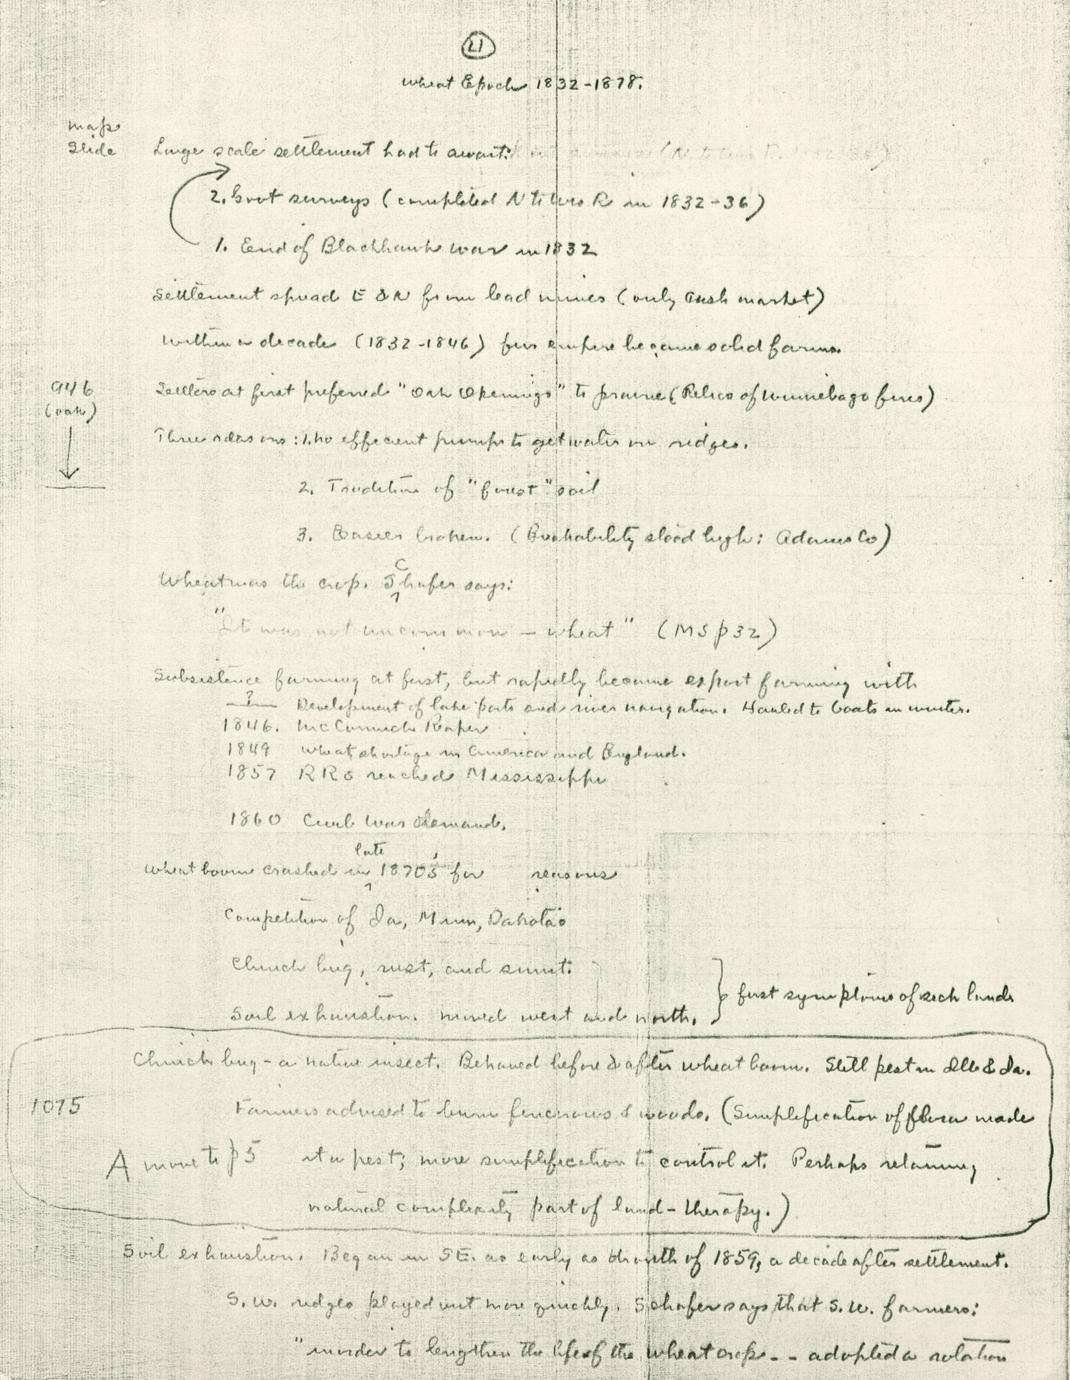 21
Wheat Epoch 1832-1878.
map
Slide
Large scale settlement had to await:
2. Govt surveys (completed N to Wis R in 1832-36)
1. End of Blackhawk war in 1832
Settlement spread E & N from lead mines (only cash market)
Within a decade (1832-1846) fur empire became solid farms.
946
(oak)
Settlers at first preferred "Oak Openings" to prairie (Relics of Winnebago fires)
Three reasons: 1. no efficient pumps to get water on ridges.
2. Tradition of "forest" soil
3. Easier broken. (Probability stood high: Adams Co)
Wheat was the crop. Schafer says:
"It was not uncommon — wheat" (MS p 32)
Subsistence farming at first, but rapidly became export farming with
? Development of lake ports and river navigation. Hauled to boats in winter.
1846. McCormick Reaper
1849 wheat shortage in America and England.
1857 RRs reached Mississippi
1860 Civil War demands.
Wheat boom crashed in late 1870s for reasons
Competition of Ia, Minn, Dakotas
Chinch bug, rust, and smut.
Soil exhaustion. Moved west and north.
} first symptoms of sick lands
Chinch bug - a native insect. Behaved before & after wheat boom. Still pest in Ills & Ia.
1075
Farmers advised to burn fencerows & woods. (Simplification of flora made
A move to p 5
it a pest; more simplification to control it. Perhaps retaining
natural complexity part of land-therapy.)
Soil exhaustion. Began in SE. as early as of 1859, a decade after settlement.
S.W. ridges played out more quickly. Schafer says that S.W. farmers:
"in order to lengthen the life of the wheat crop -- adopted a rotation